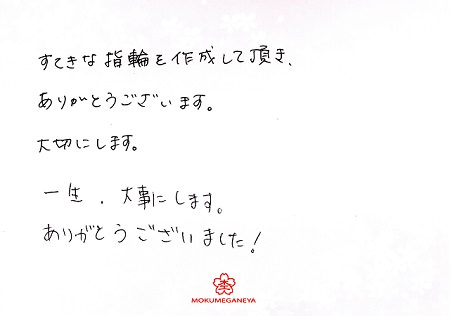 すてきな指輪を作成して頂き、
ありがとうございます。
大切にします。
一生、大事にします。
ありがとうございました!
MOKUMEGANEYA